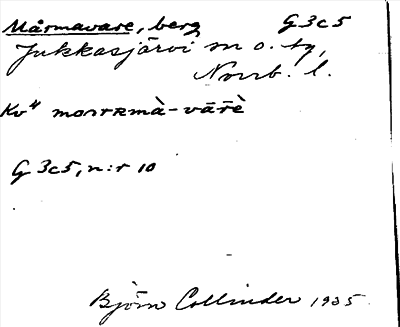 Mårmavare, berg G 3c5
Jukkasjärvi sn o. tg,
Norrb. l.
Kv"
G 3c5, n:r 10
Björn Collinder 1935